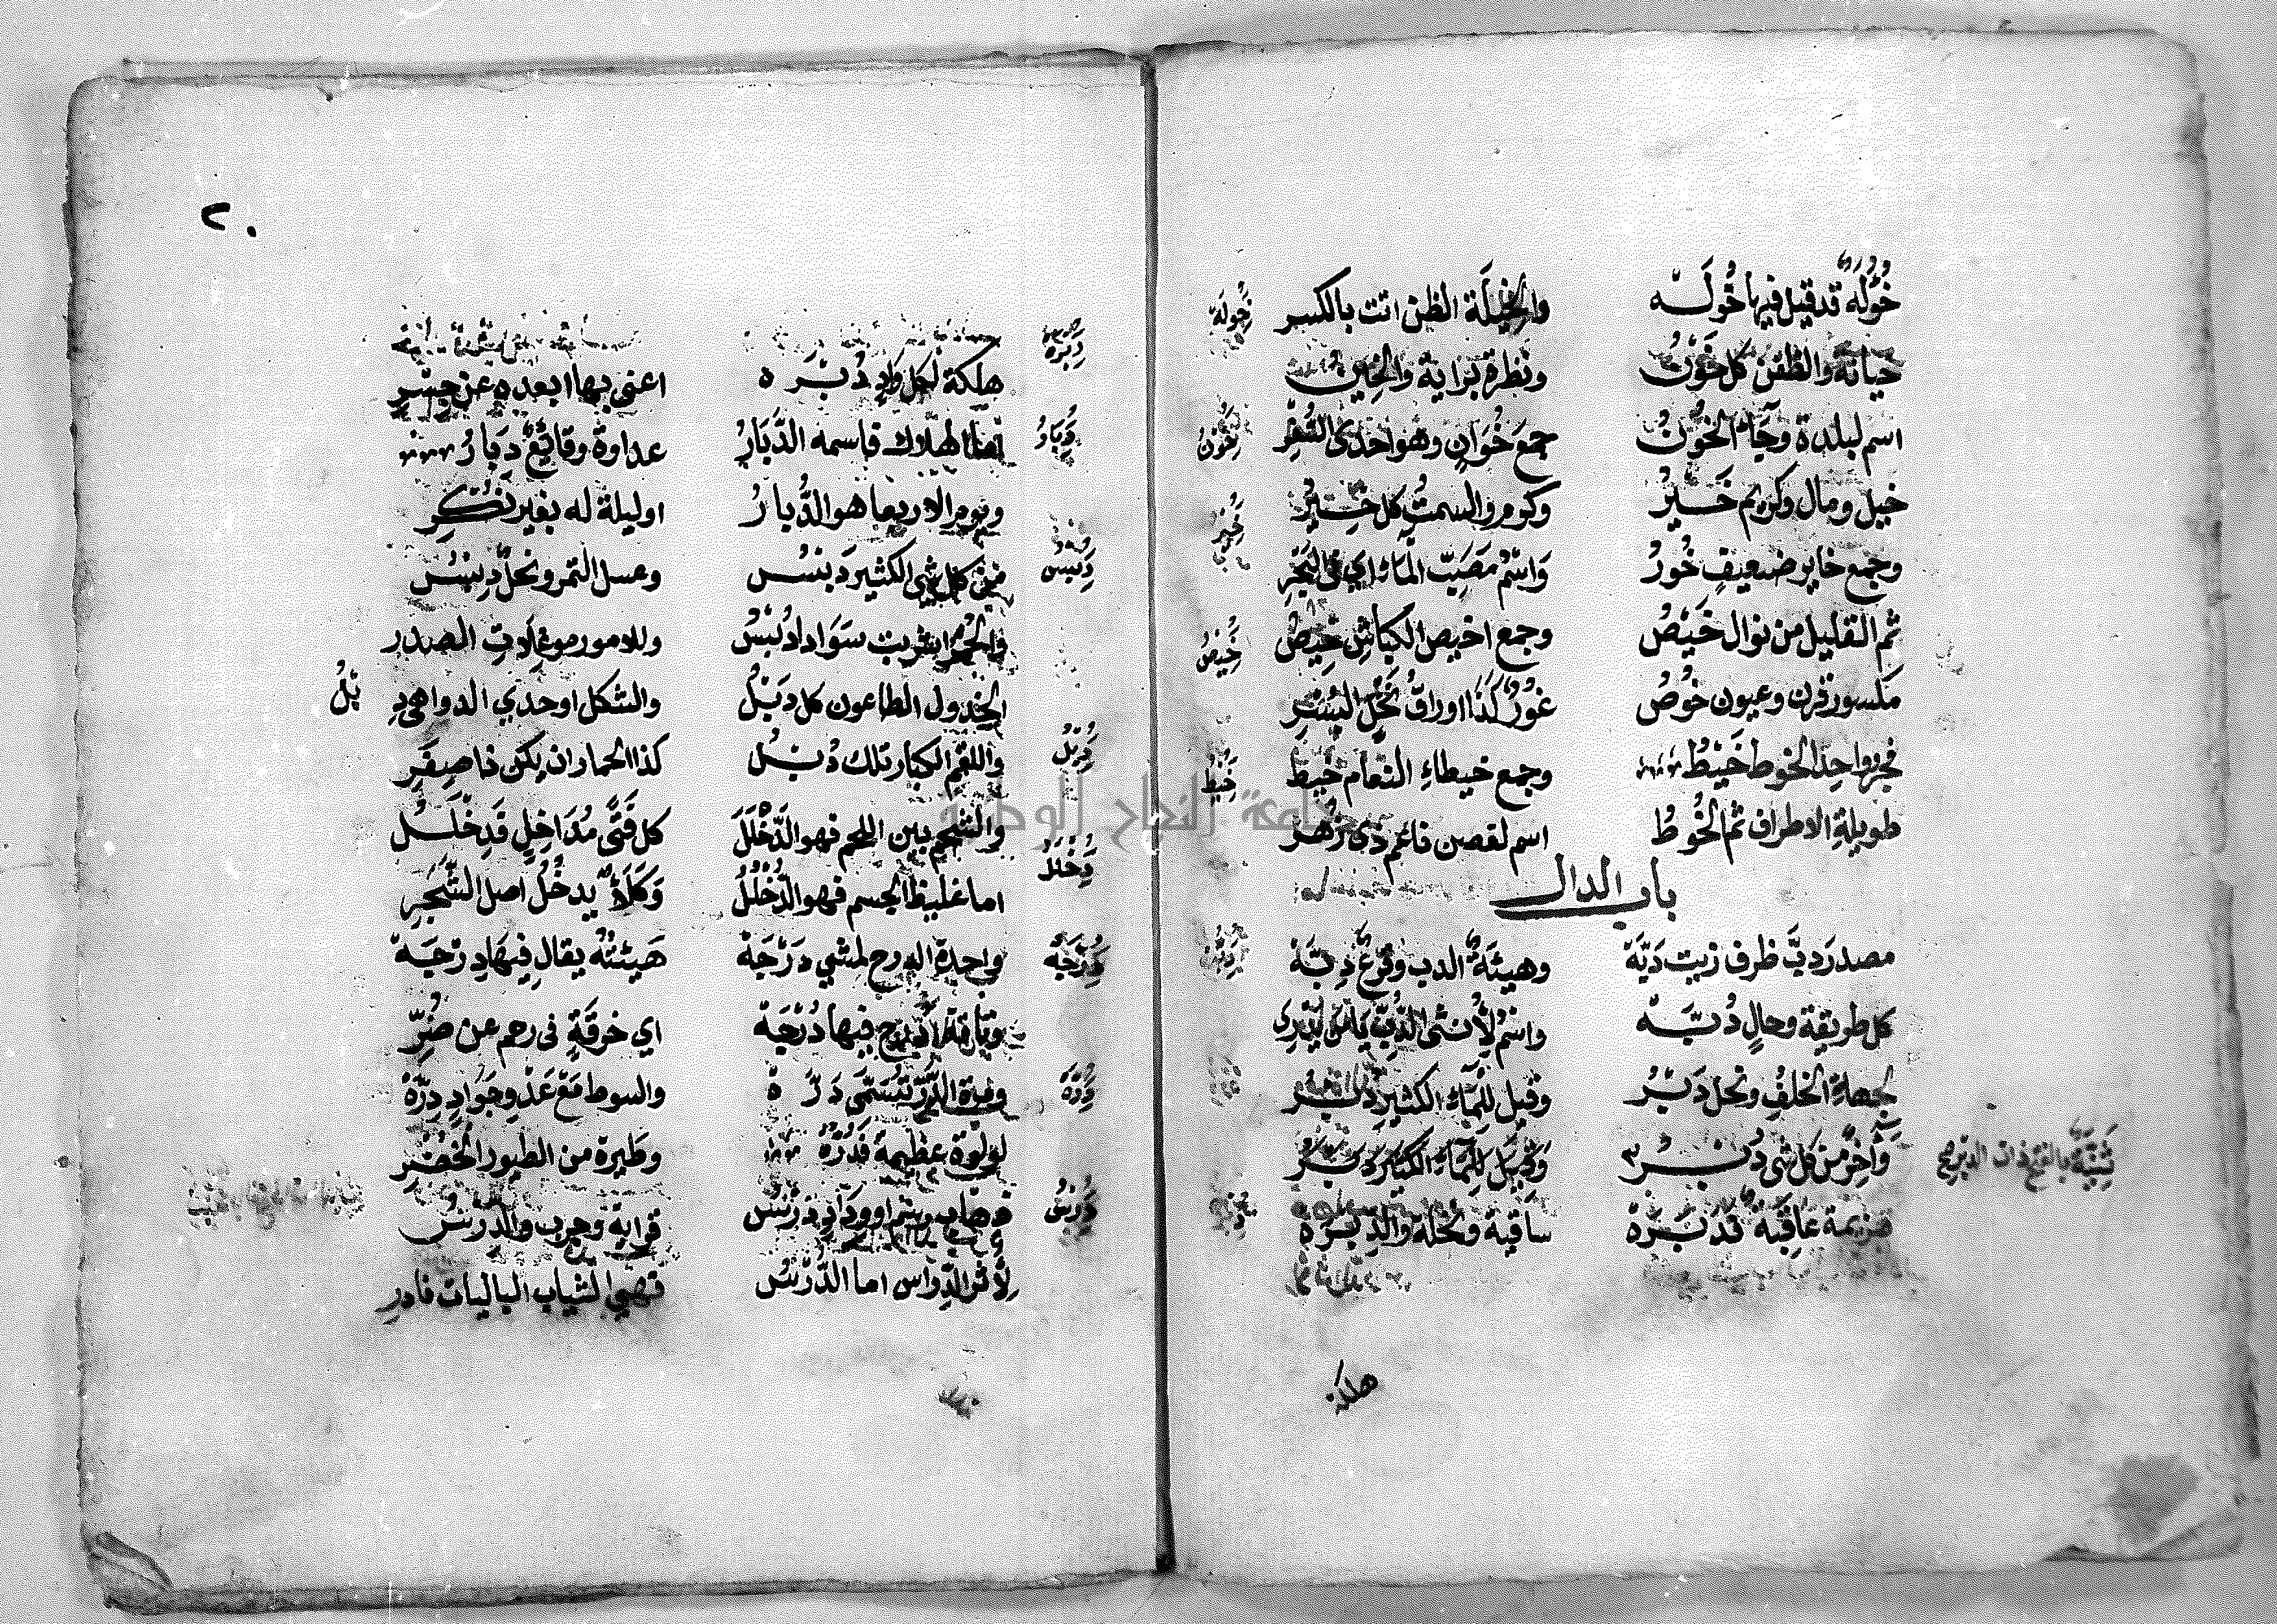 خُؤُلَة قد قيل فيها خُولَـه والخِيلَة الظن اتت بالكسر خُولَة
خيانة والظفن كل خَوْنُ ونظرة بزاية والخِينُ
اسم لبلدة وجاء الخُونُ جمعَ خُوانٍ وهو احدى السُّفَرِ خُونُ
خيل ومال وكريم خَيْرُ وكرم والسمتُ كل خِيرُ خُيُر
وجمع خاير ضعيفٍ خُورُ وَاسْمُ مَصَبّ المَاء اي في البَحْرِ
ثم القليل من نوال خَيْصُ وجمع اخيص الكباشِ خِيصُ خُيصُ
مكسور قرن وعيون خُوصُ غُورٌ كَذَا اوراقُ نَخْلِ البُسْرِ
فجر واحد الخوط خَيْطُ وجمع خيطاءِ النعام خِيط خُيطُ
طويلةِ الاطراف ثم الخُوطُ اسم لغصن ناعم ذي زَهْر
باب الدال
مصدر دَبَّ ظرف زيت دَبَّة وهيئَةُ الدب وفَرْعٌ دِبَّة
كل طريقة وحالٍ دُبَّـه واسْمٌ لأُنثى الدُّبِّ يا من يَدْرِي
لجهةِ الخلفِ ونحل دَبْرُ وقيل للمآء الكثير دِبْـرُ
وَآخِرٌ من كل شيء دُبْـرُ وَقِيلَ لِلمَآءِ الكثير دِبْـرُ
هزيمة عاقبة قد دَبَرَهْ ساقية ونخلة والدِبْرَهْ
ثَنِيَّة بالفتح ذات الدبر هي
هلكة
٢٠
دبره
هلكة لكل وادٍ دُبْـره اعني بها ابعده عن جسْرٍ
اما الهلاك فاسمه الدَّبَارُ عداوة وقايعٌ دِبَارُ دُبَارُ
ويوم الاربعا هو الدُّبارُ او ليلة له بغير نُكْرِ
من كل شي الكثير دَبْسُ وعسل التمر ونحل دِبْسُ دبس
والحُمْرُ اشربت سَوَادا دُبْسُ وللامور موغِلَاتِ الصدر
الجدول الطاعون كل دَبْلُ والشكل او احدي الدواهي دِ بْلُ
واللقم الكبار تلك دُبْـلُ كذا الحمار ان يكن ذا صِغَرِ دُبْلُ
والشحم بين اللحم فهو الدَّخْلَلُ كل فَتًى مُدَاخِلٍ قَدِ خْلَـلُ دُخْلَلُ
اما غليظ الجسم فهو الدُّخْلُلُ وَكَلَأٌ يدخُلُ اصل الشَّجَرِ
واحدة الدرج لمشي دَرْجَةْ هَيْئَتُهُ يقال فِيهَا دِرْجَـةْ دُرْجَهْ
وناقة اُدرج فيها دُرْجَةْ اي خرقَةٍ في رحم عن ضُرِّ
ومرة الدَّرِّ تُسَمَّى دَرَّهْ والسوط مَعْ عَدْوِ جَوَادٍ دِرَّهْ دُرَّهْ
لولوة عظيمة فَدُرَّهْ وطَيرة من الطيور الخُضْرِ
ذهاب رسم او ودادٍ دَرْسُ قراية وجرب والدِرْسُ دُرْسُ
لأثر الدِواس اما الدُّرْسُ فهي الثياب الباليات فادرِ